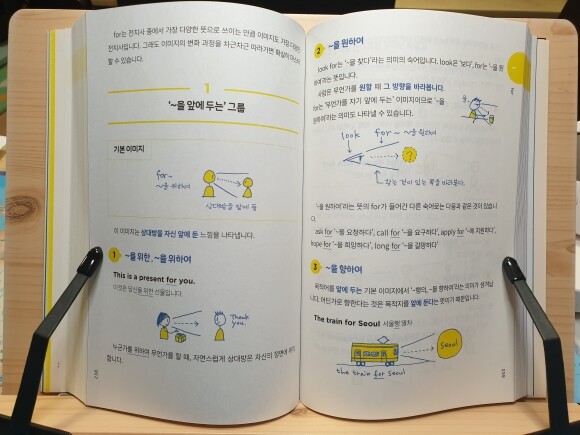 for는 전치사 중에서 가장 다양한 뜻으로 쓰이는 만큼 이미지도 가장 다양한
전치사입니다. 그래도 이미지의 변화 과정을 차근차근 따라가면 확실히 마스터
할 수 있습니다.
1
'~을 앞에 두는' 그룹
기본 이미지
for~
~을 위하여
상대방을 앞에 둠
이 이미지는 상대방을 자신 앞에 둔 느낌을 나타냅니다.
1 ~을 위한, ~을 위하여
This is a present for you.
이것은 당신을 위한 선물입니다.
Thank
you.
누군가를 위하여 무언가를 할 때, 자연스럽게 상대방은 자신의 정면에 위치
합니다.
2 ~을 원하여
look for는 '~을 찾다'라는 의미의 숙어입니다. look은 '보다', for는 '~을 원
하여'라는 뜻입니다.
사람은 무언가를 원할 때 그 방향을 바라봅니다.
for는 '무언가를 자기 앞에 두는' 이미지이므로 '~을
원하여'라는 의미도 나타낼 수 있습니다.
look for ~ ~을 원하여
?
찾는 것이 있는 쪽을 바라본다.
'~을 원하여'라는 뜻의 for가 들어간 다른 숙어로는 다음과 같은 것이 있습니
다.
ask for '~을 요청하다', call for '~을 요구하다', apply for '~에 지원하다',
hope for '~을 희망하다', long for '~을 갈망하다'
3 ~을 향하여
목적어를 앞에 두는 기본 이미지에서 '~행의, ~을 향하여'라는 의미가 생겨납
니다. 어딘가로 향한다는 것은 목적지를 앞에 둔다는 뜻이기 때문입니다.
The train for Seoul 서울행 열차
Seoul
the train for Seoul